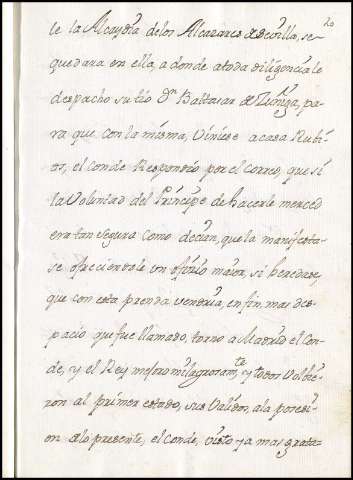 20
le la Alcaydia de los Alcazares de Sevilla, se
quedara en ella, a donde a toda diligencia le
despacho su tio Dn Baltasar de Zuñiga, pa
ra que con la misma, Viniese a casa Rubi
os, el Conde Respondio por el correo, que si
la Voluntad del Principe de hacerle merced
era tan segura como decian, que la manifesta-
se ofreciendole un oficio maior, si heredase,
que con esta prenda vendria, en fin, mas des
pacio que fue llamado, torno a Madrid el Con-
de, y el Rey mejoro milagrosamte y todos Volbie-
ron al primer estado, sus Validos, a la posesi-
on de lo presente, el Conde, visto ya mas grata-